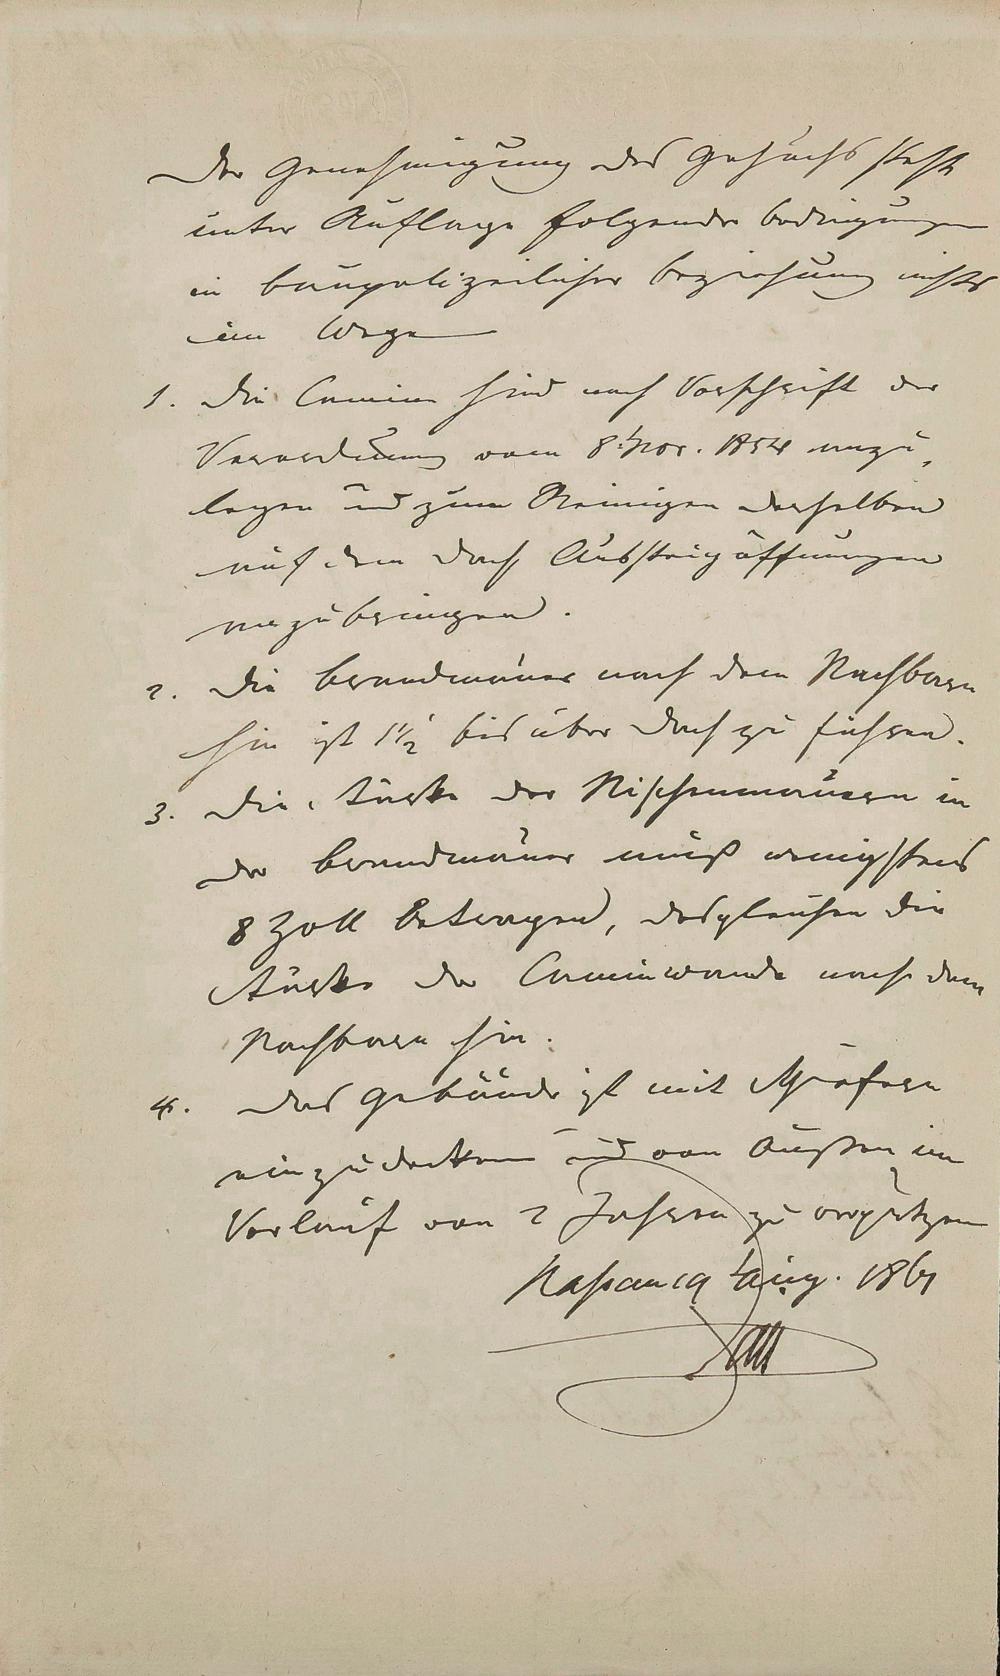 Der Genehmigung des Gesuchs steht
unter Auflage folgender Bedingungen
in baupolizeilicher Beziehung nichts
im Wege
1. Die Camine sind nach Vorschrift der
Verordnung vom 8t Nov. 1854 anzu„
legen und zum Reinigen derselben
auf dem Dach Aussteigöffnungen
anzubringen.
2. Die Brandmauer nach dem Nachbarn
hin ist 1 1/2' bis über Dach zu führen.
3. Die Stärke der Nischenmauern in
der Brandmauer muß wenigstens
8 Zoll betragen, desgleichen die
Stärke der Caminwände nach dem
Nachbarn hin.
4. Das Gebäude ist mit Schiefern
einzudecken und von Außen im
Verlauf von 2 Jahren zu verputzen
Nassau 19 t Aug. 1861